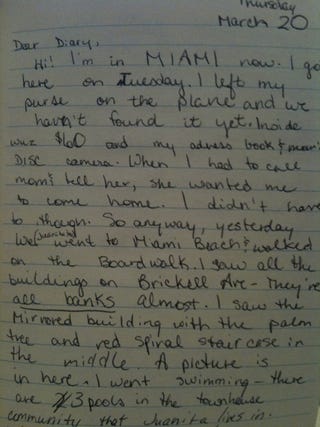 Thursday
March 20
Dear Diary,
Hi! I'm in MIAMI now. I go
here on Tuesday. I left my
purse on the plane and we
haven't found it yet. Inside
wuz $60 and my adress book & mom's
DISC camera. When I had to call
mom & tell her, she wanted me
to come home. I didn't have
to though. So anyway, yesterday
We (Juanita &) went to Miami Beach & walked
on the Boardwalk. I saw all the
buildings on Brickell Ave - They're
all banks almost. I saw the
Mirrored building with the palm
tree and red spiral staircase in
the middle. A picture is
in here. I went swimming - there
are 3 pools in the townhouse
community that Juanita lives in.